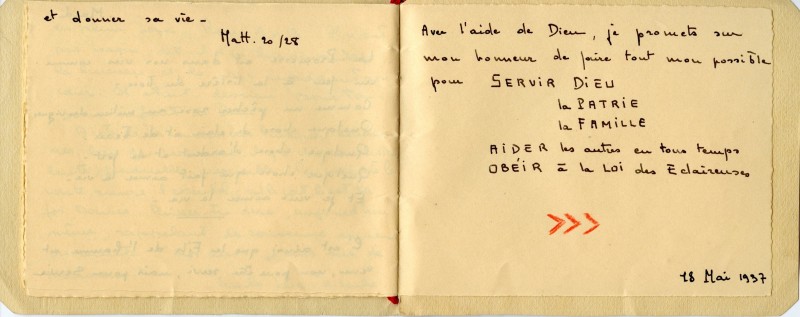 et donner sa vie -
Matt. 20/28
Avec l'aide de Dieu, je promets sur
mon honneur de faire tout mon possible
pour SERVIR DIEU
la PATRIE
la FAMILLE
AIDER les autres en tous temps
OBÉIR à la LOI des Eclaireuses
>>>
18 Mai 1937